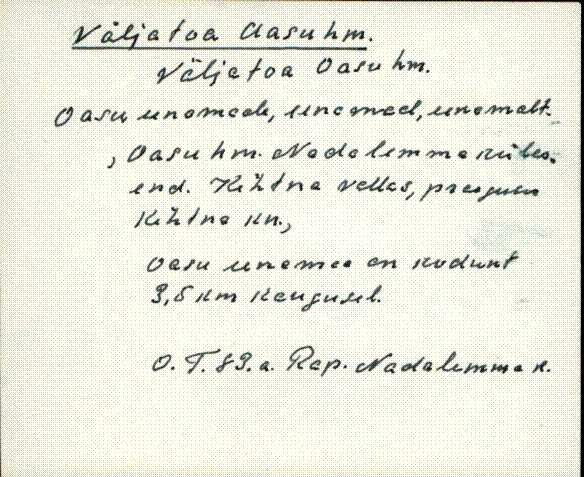 Väljatoa Aasu hm.
Väljatoa Oasu hm.
Oasu unamede, unamed, unamalt.
, Oasu hm. Nadalemma külas.
end. Kehtna vallas, praegune
Kehtna kn.,
Oasu unamaa on kodunt
3,5 km kaugusel.
O. T. 89. a. Rap. Nadalemma k.